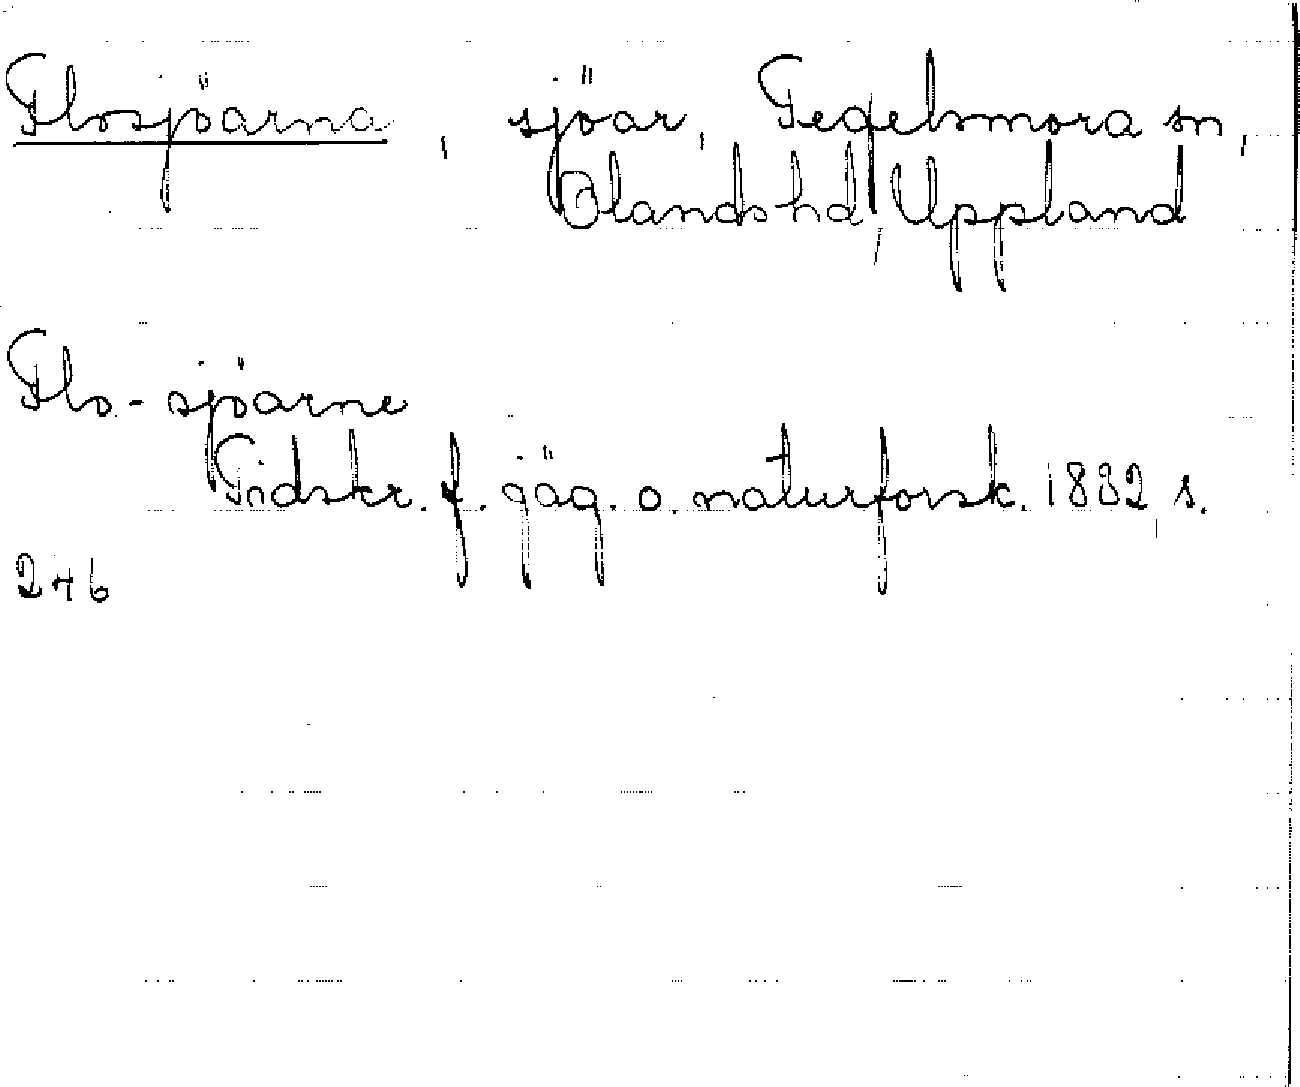 Flosjöarna, sjöar, Tegelsmora sn,
Olands hd, Uppland
Flo-sjöarne
Tidskr. f. jäg. o. naturforsk. 1832, s.
246